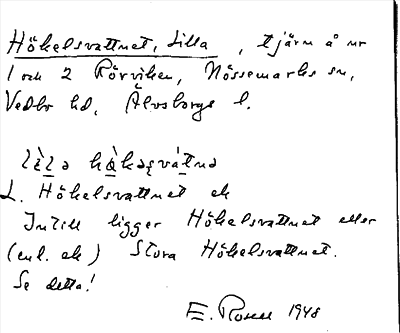 Hökelsvattnet, Lilla, tjärn å nr
1 och 2 Rörviken, Nössemarks sn,
Vedbo hd, Älvsborgs l.
lìla hàkəsvátnə
L. Hökelsvattnet ek
Intill ligger Hökelsvattnet eller
(enl. ek) Stora Hökelsvattnet.
Se detta!
E. Rosell 1948